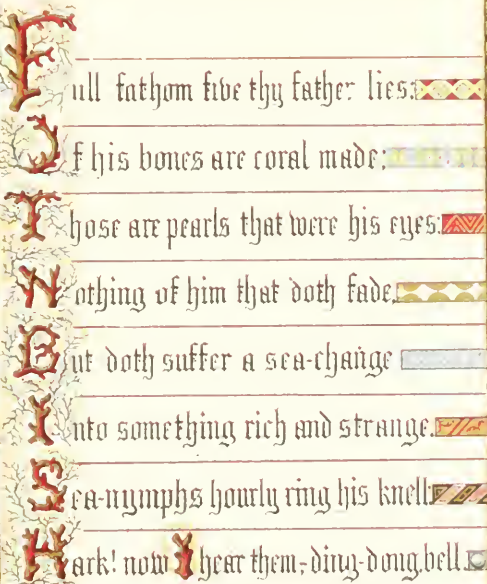 Full fathom five thy father lies:
Of his bones are coral made;
Those are pearls that were his eyes:
Nothing of him that doth fade,
But doth suffer a sea-change
Into something rich and strange.
Sea-nymphs hourly ring his knell:
Hark! now I hear them,-ding-dong, bell.